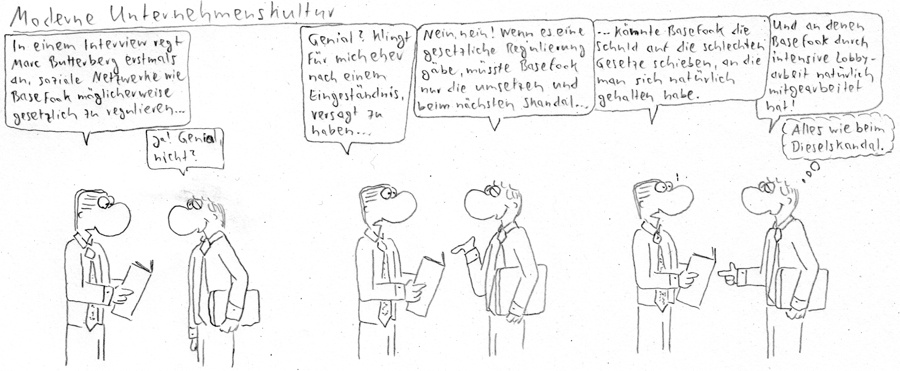 Moderne Unternehmenskultur
In einem Interview regt
Marc Butterberg erstmals
an, soziale Netzwerke wie
BaseFook möglicherweise
gesetzlich zu regulieren...
Ja! Genial,
nicht?
Genial? Klingt
für mich eher
nach einem
Eingeständnis,
versagt zu
haben...
Nein, nein! Wenn es eine
gesetzliche Regulierung
gäbe, müsste BaseFook
nur die umsetzen und
beim nächsten Skandal...
... könnte BaseFook die
Schuld auf die schlechten
Gesetze schieben, an die
man sich natürlich
gehalten habe.
Und an denen
BaseFook durch
intensive Lobby-
arbeit natürlich
mitgearbeitet
hat!
Alles wie beim
Dieselskandal.